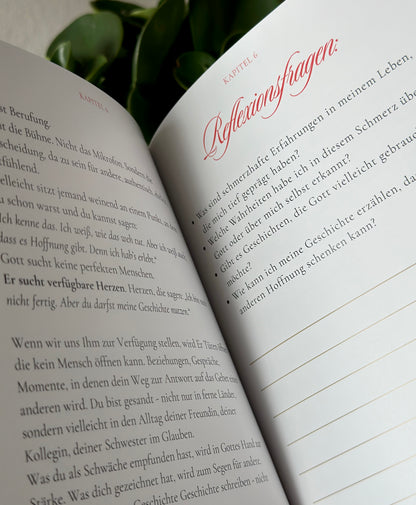 KAPITEL 6
st Berufung.
t die Bühne. Nicht das Mikrofon. Sondern die
scheidung, da zu sein für andere, authentisch,
fühlend.
elleicht sitzt jemand weinend an einem Punkt, an dem
u schon warst und du kannst sagen:
Ich kenne das. Ich weiß, wie das weh tut. Aber ich weiß auch,
dass es Hoffnung gibt. Denn ich hab's erlebt."
Gott sucht keine perfekten Menschen.
Er sucht verfügbare Herzen. Herzen, die sagen: „Ich bin
nicht fertig. Aber du darfst meine Geschichte nutzen."
Wenn wir uns Ihm zur Verfügung stellen, wird Er Türen
die kein Mensch öffnen kann. Beziehungen, Gespräche,
Momente, in denen dein Weg zur Antwort auf das Gebet eines
anderen wird. Du bist gesandt - nicht nur in ferne Länder,
sondern vielleicht in den Alltag deiner Freundin, deiner
Kollegin, deiner Schwester im Glauben.
Was du als Schwäche empfunden hast, wird in Gottes Hand zu
Stärke. Was dich gezeichnet hat, wird zum Segen für andere.
Geschichte Geschichte schreiben - nicht
KAPITEL 6
Reflexionsfragen:
• Was sind schmerzhafte Erfahrungen in meinem Leben,
die mich tief geprägt haben?
• Welche Wahrheiten habe ich in diesem Schmerz über
Gott oder über mich selbst erkannt?
• Gibt es Geschichten, die Gott vielleicht gebrauchen
möchte?
• Wie kann ich meine Geschichte erzählen, da
anderen Hoffnung schenken kann?